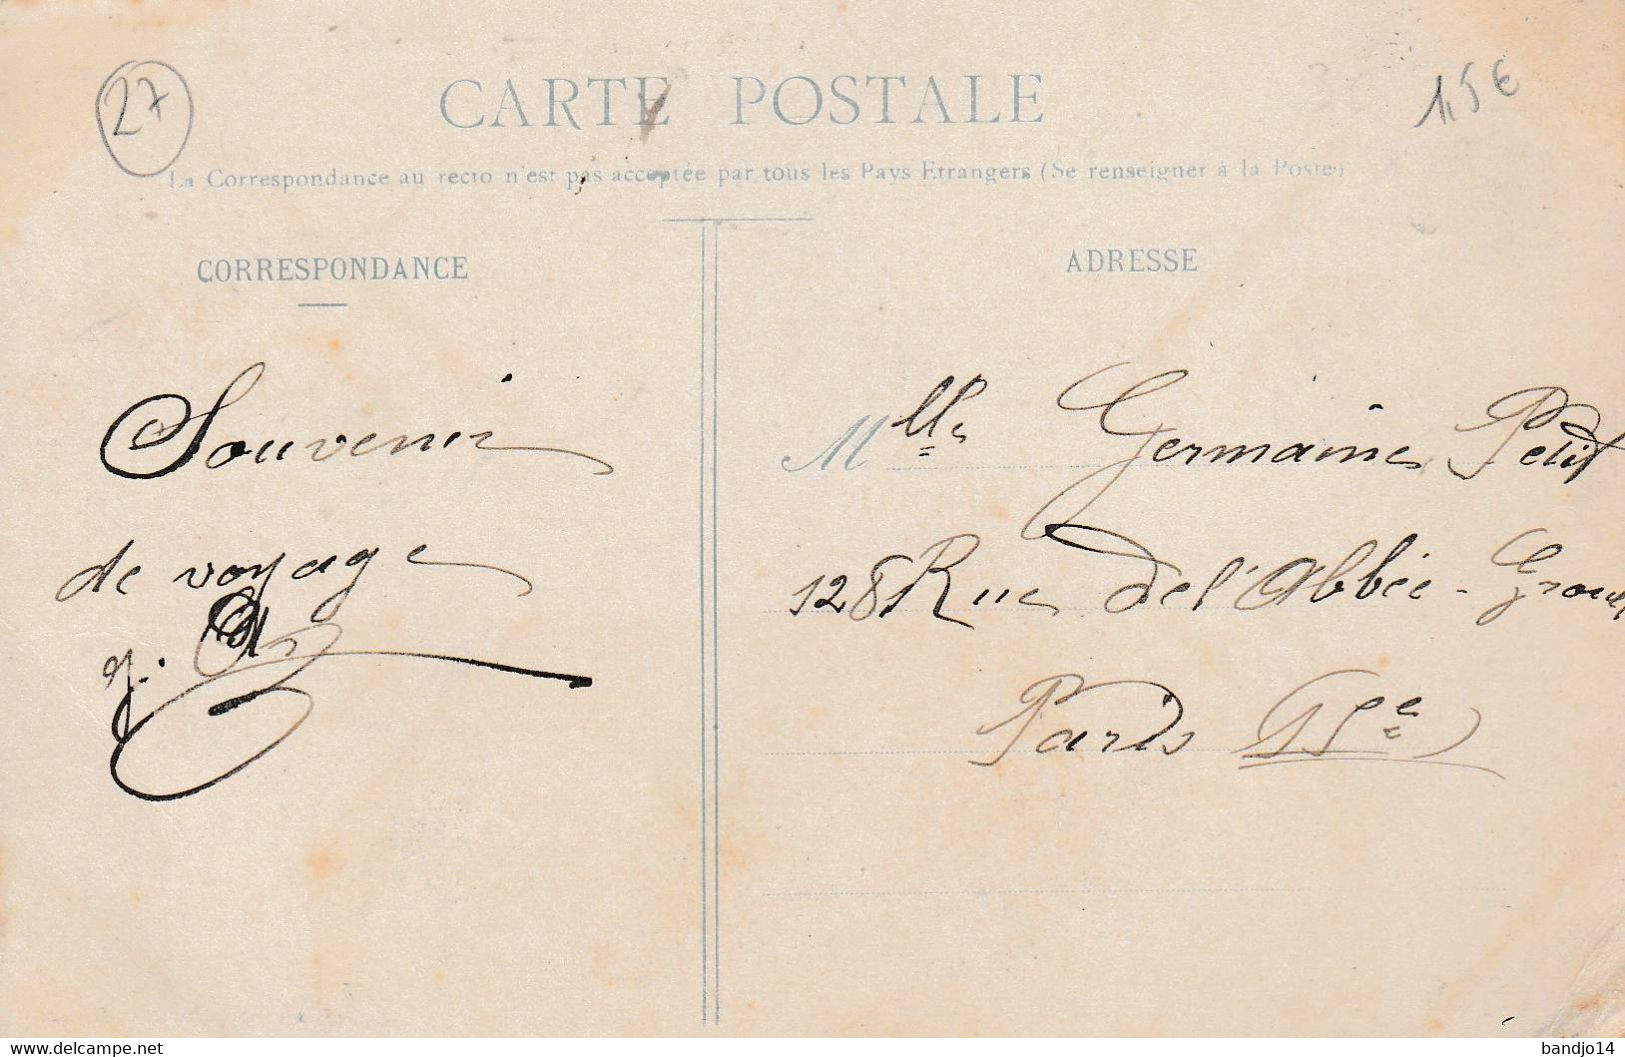 27
1,5€
CARTE POSTALE
La Correspondance au recto n'est pas acceptée par tous les Pays Etrangers (Se renseigner à la Poste)
CORRESPONDANCE
Souvenir
de voyage
ADRESSE
Mlle Germaine Petit
128 Rue de l'Abbée-Groult
Paris 15e
www.delcampe.net
bandjo14